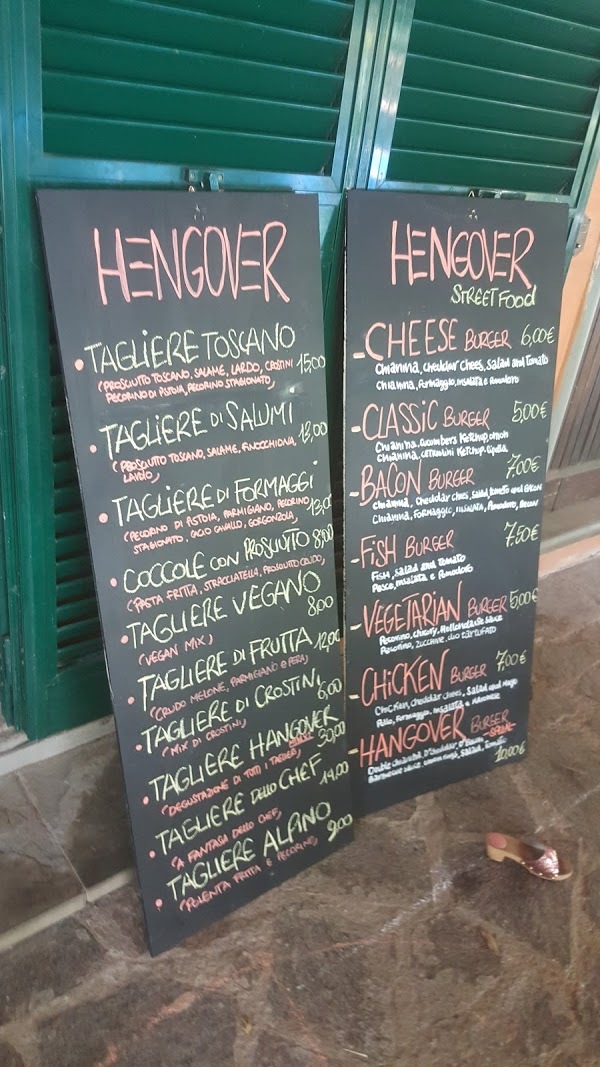 HENGOVER
TAGLIERE TOSCANO
(PROSCIUTTO TOSCANO, SALAME, LARDO, CROSTINI 15,00
PECORINO DI PISTOIA, PECORINO STAGIONATO)
TAGLIERE DI SALUMI
(PROSCIUTTO TOSCANO, SALAME, FINOCCHIONA,
TAGLIERE DI FORMAGGI
(PECORINO DI PISTOIA, PARMIGIANO, PECORINO 13,00
STAGIONATO, CACIO CAVALLO, GORGONZOLA)
COCCOLE CON PROSCIUTTO 8,00
(PASTA FRITTA, STRACCIATELLA, PROSCIUTTO CRUDO)
TAGLIERE VEGANO
8,00
(VEGAN MIX)
TAGLIERE DI FRUTTA 12,00
(CRUDO MELONE, PARMIGIANO E PERA)
TAGLIERE DI CROSTINI 6,00
(MIX DI CROSTINI)
TAGLIERE HANGOVER
30,00
(DEGUSTAZIONE DI TUTTI I TAGLIERI)
TAGLIERE DELLO CHEF 14,00
(A FANTASIA DELLO CHEF)
TAGLIERE ALPINO 9,00
(POLENTA FRITTA E PECORINO)
HENGOVER
STREET FOOD
-CHEESE BURGER 6,00€
Chianina, cheddar chees, salad and tomato
Chianina, formaggio, insalata e pomodoro
-CLASSIC BURGER 5,00€
Chianina, cucumbers Ketchup, onion
Chianina, cetriolini Ketchup,
-BACON BURGER 7,00€
Chianina, cheddar chees, salad, tomato and BACON
Chianina, formaggio, insalata, Pomodoro, BACON
-FISH BURGER 7,50€
Fish, salad and tomato
Pesce, insalata e Pomodoro
-VEGETARIAN BURGER 5,00€
Pecorino, zucchine, olio tartufato
-CHICKEN BURGER 7,00€
Chicken, cheddar chees, salad and mayo
Pollo, formaggio, insalata e maionese
-HANGOVER BURGER
Double chianina, D°cheddar, D°Bacon,
Barbecue sauce, onion rings, salad, tomato
10,00€